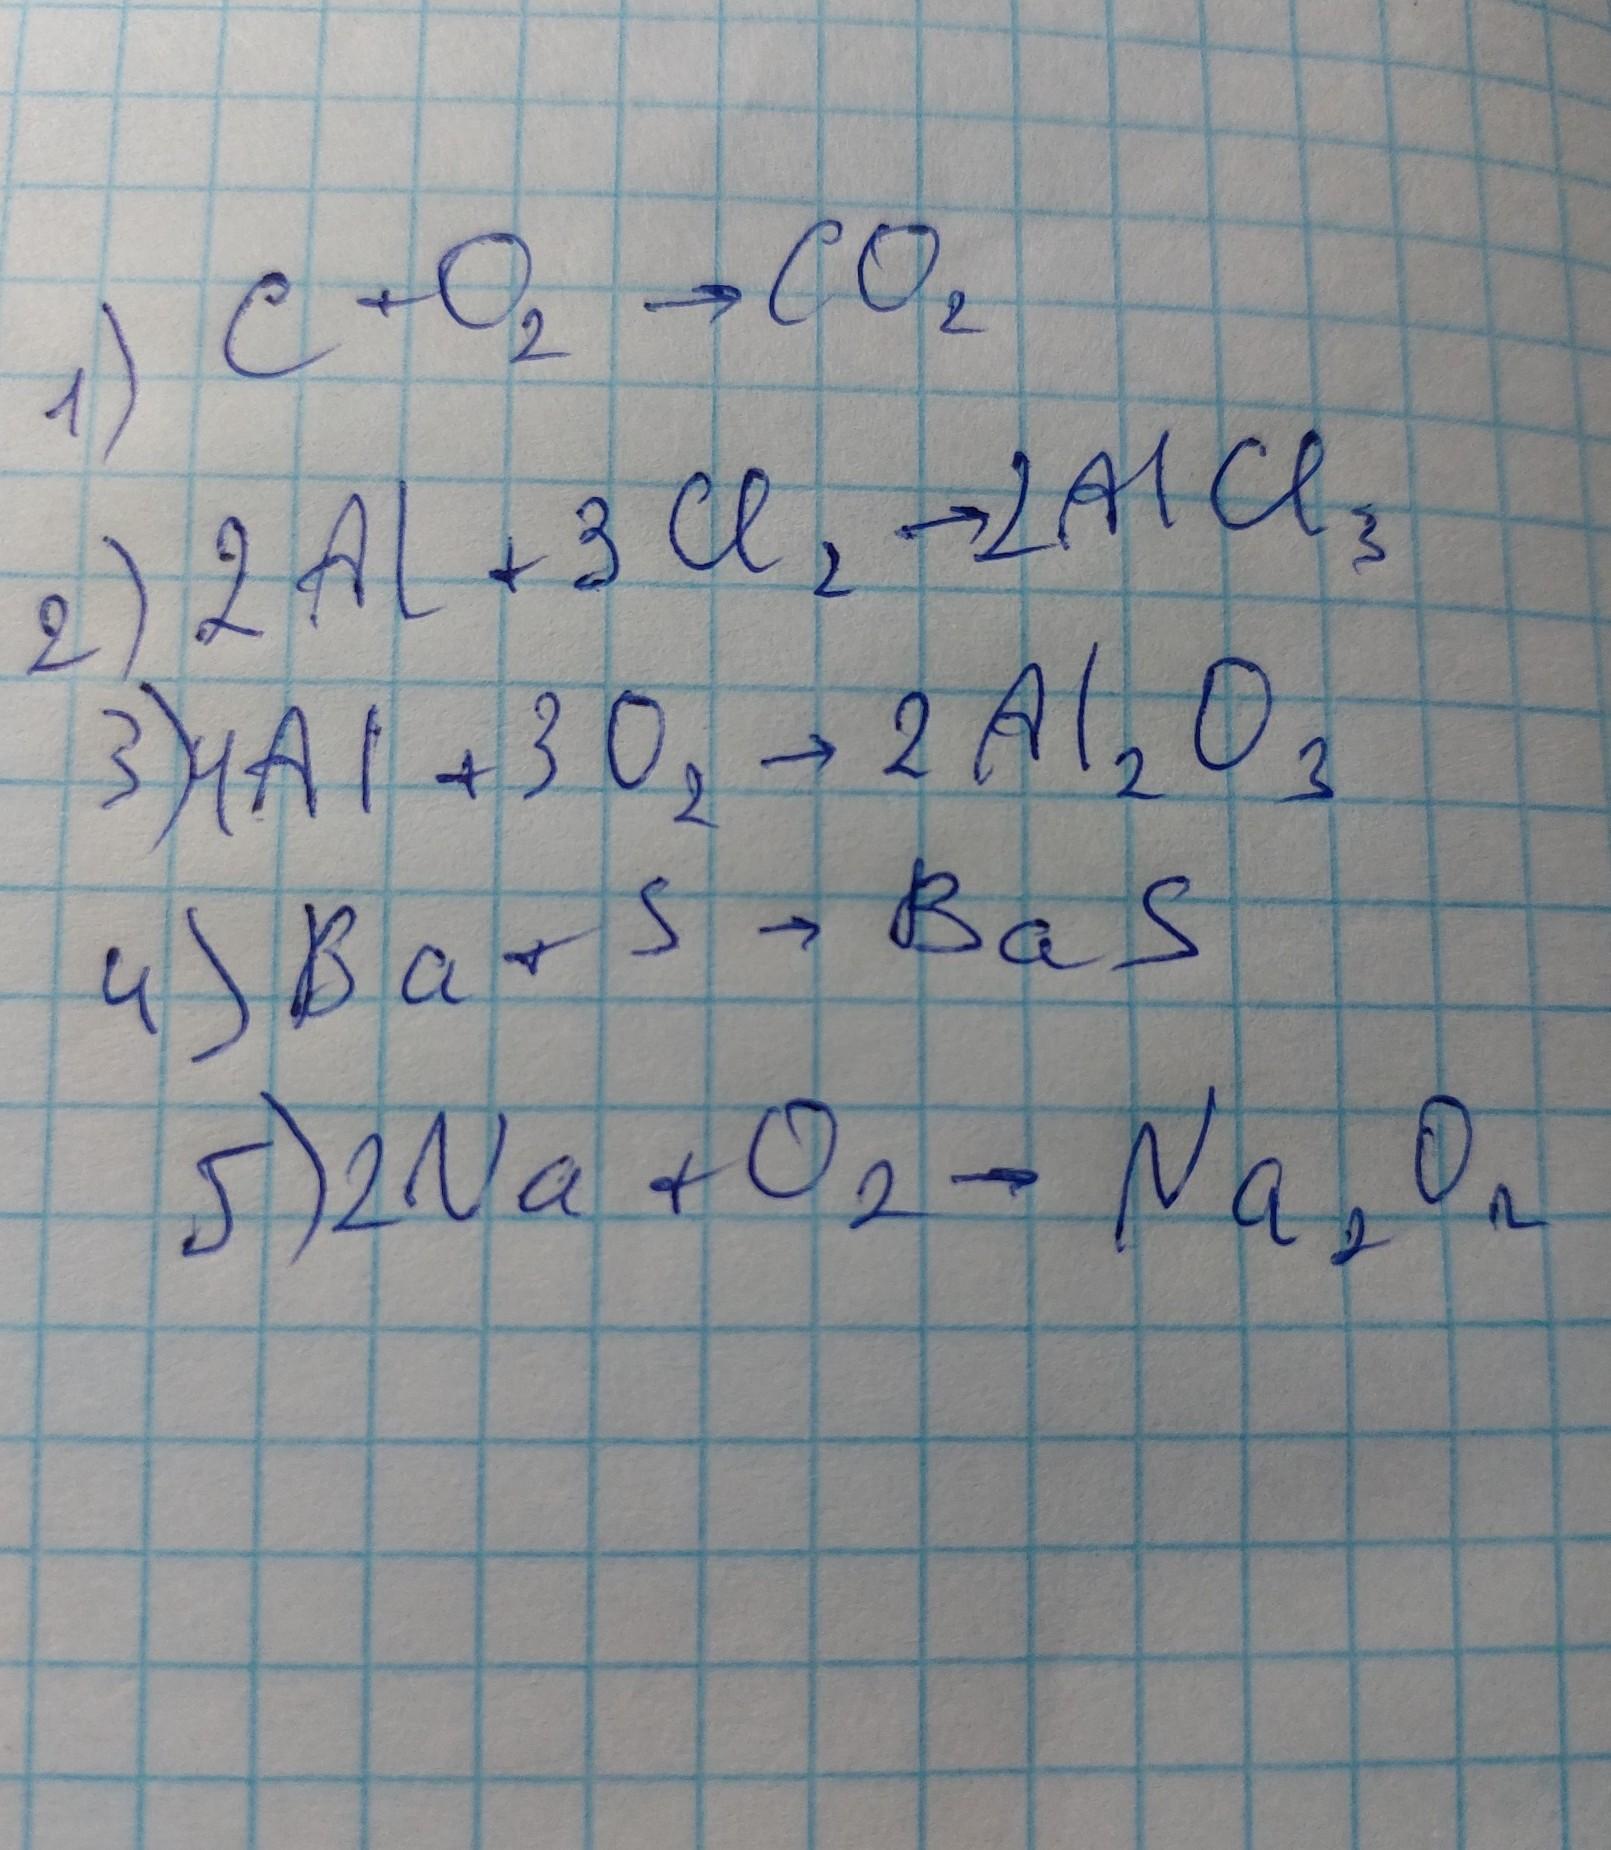 1) C + O₂ → CO₂
2) 2Al + 3Cl₂ → 2AlCl₃
3) 4Al + 3O₂ → 2Al₂O₃
4) Ba + S → BaS
5) 2Na + O₂ → Na₂O₂